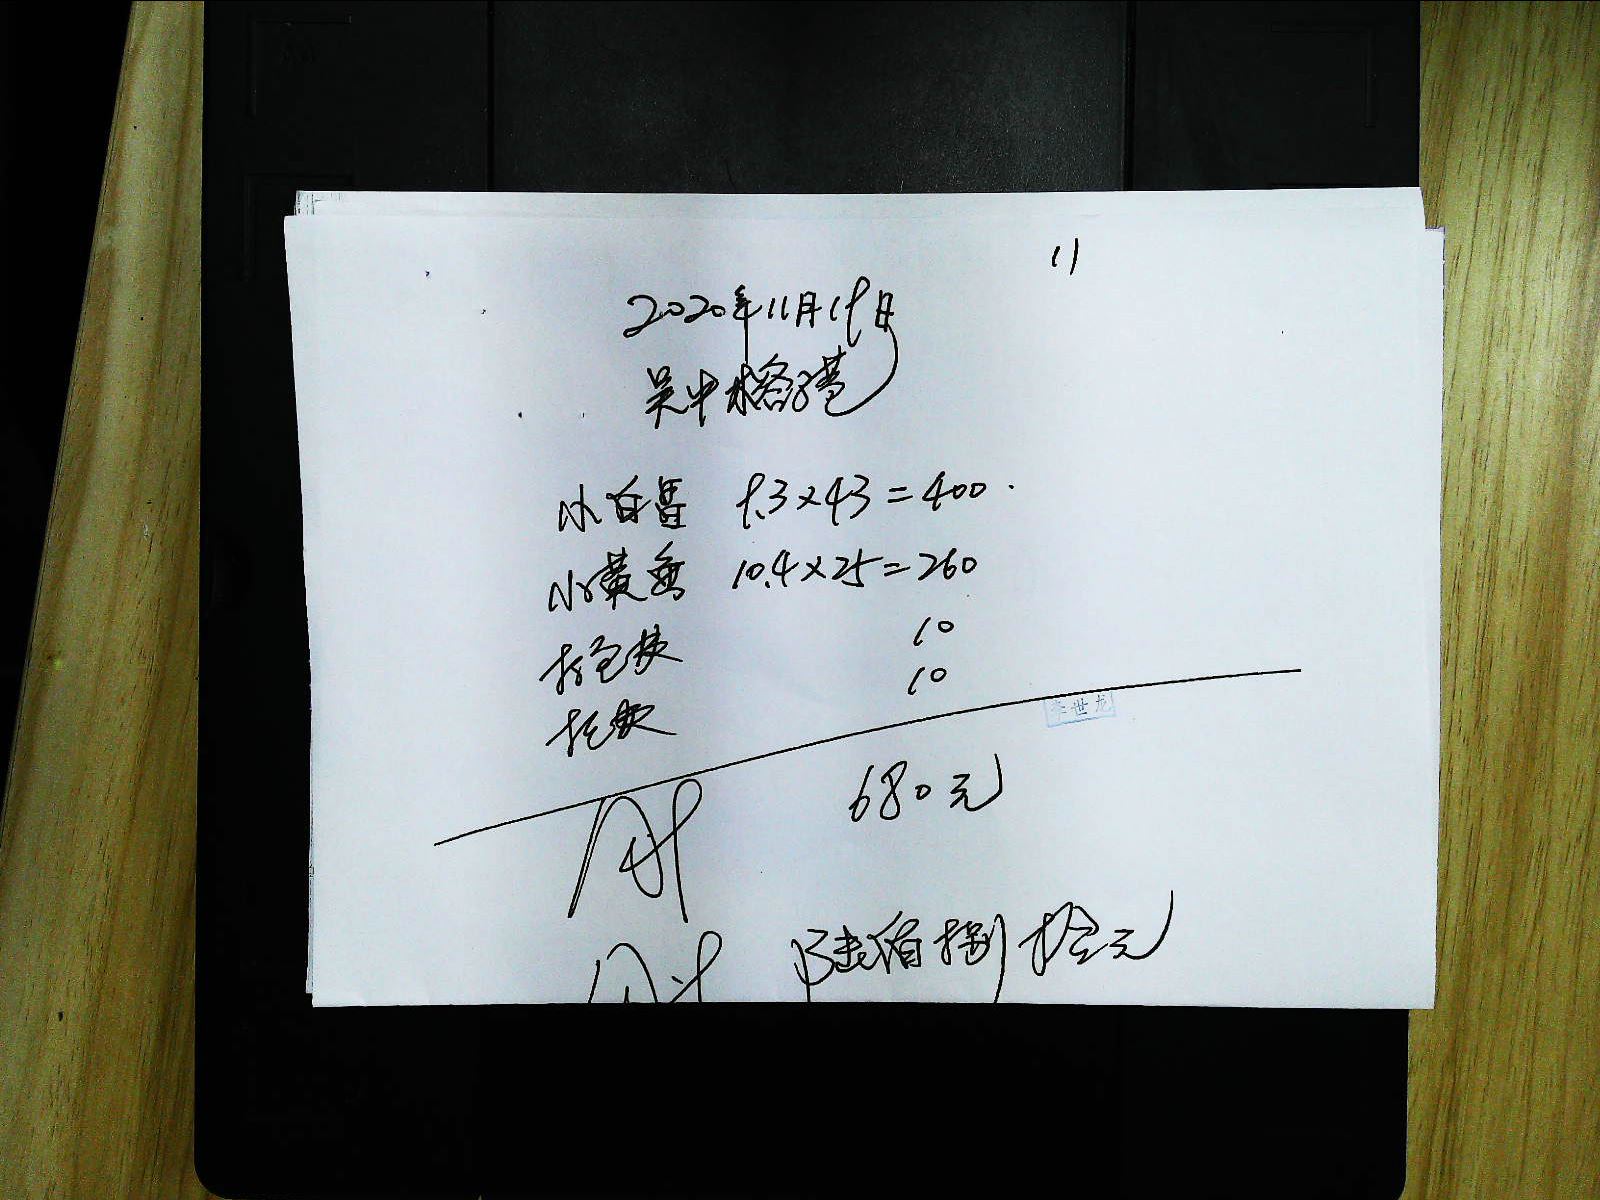 11
2020年11月19日
吴中榕港
小白 9.3×43=400
小黄鱼 10.4×25=260
打包 10
10
李世龙
680元
陆佰捌拾元